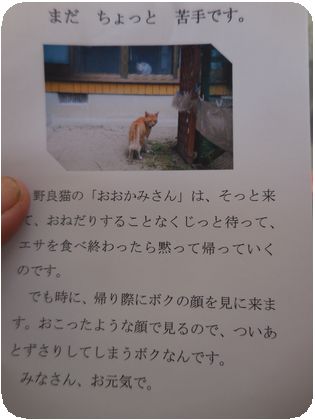 まだ ちょっと 苦手です。
野良猫の「おおかみさん」は、そっと来
て、おねだりすることなくじっと待って、
エサを食べ終わったら黙って帰っていく
のです。
でも時に、帰り際にボクの顔を見に来ま
す。おこったような顔で見るので、ついあ
とずさりしてしまうボクなんです。
みなさん、お元気で。